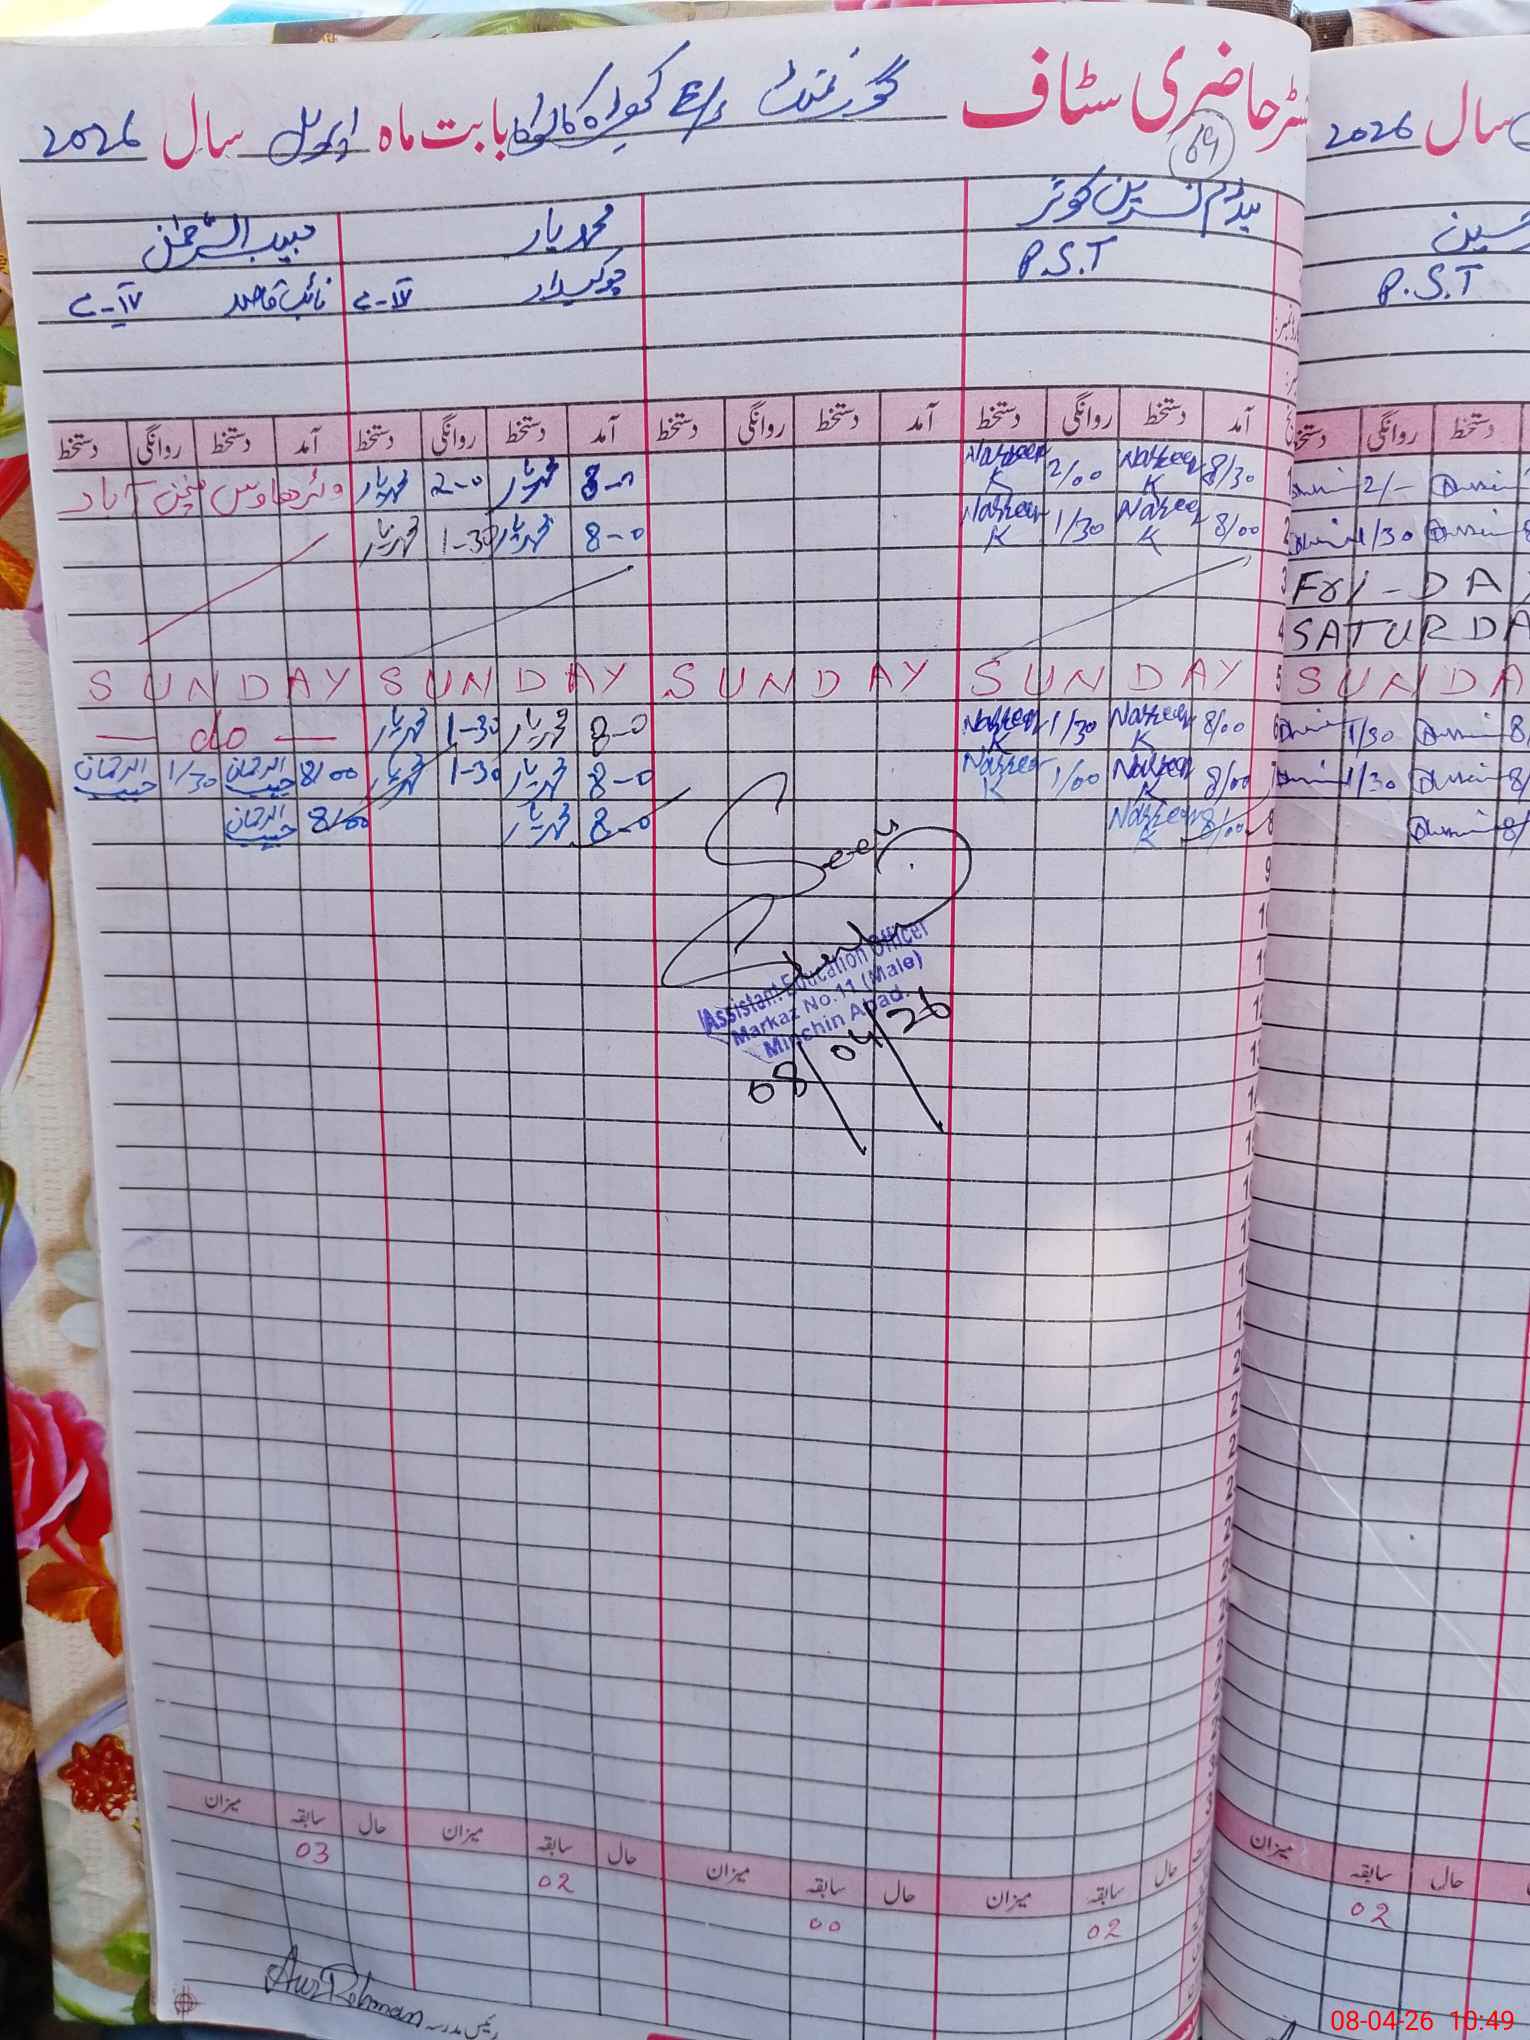 رجسٹر حاضری سٹاف گورنمنٹ E/s بابت ماہ اپریل سال 2026
64
سال 2026
میڈم نسرین کوثر محمد یار حبیب الرحمٰن
P.S.T چوکیدار نائب قاصد
P.S.T
آمد دستخط روانگی دستخط آمد دستخط روانگی دستخط آمد دستخط روانگی دستخط آمد دستخط روانگی دستخط
دستخط روانگی دستخط
1 8/30 Nasreen K 2/00 Nasreen K 8-0 محمد یار 2-0 محمد یار منچن آباد
2/-
2 8/00 Nasreen K 1/30 Nasreen K 8-0 محمد یار 1-30 محمد یار
1/30
3 Fri-DA
4 SATURDA
5 SUNDAY SUNDAY SUNDAY SUNDAY
SUNDA
6 8/00 Nasreen K 1/30 Nasreen K 8-0 محمد یار 1-30 محمد یار — do —
1/30
7 8/00 Nasreen K 1/00 Nasreen K 8-0 محمد یار 1-30 محمد یار 8/00 حبیب الرحمان 1/30 حبیب الرحمان
1/30
8 8/00 Nasreen K 8-0 محمد یار 8/00 حبیب الرحمان
9
Seen
Assistant Education Officer
Markaz No.11 (Male)
Minchin Abad.
08/04/26
حال سابقہ میزان حال سابقہ میزان حال سابقہ میزان حال سابقہ میزان
حال سابقہ میزان
02 00 02 03
02
رئیس مدرسہ
08-04-26 10:49